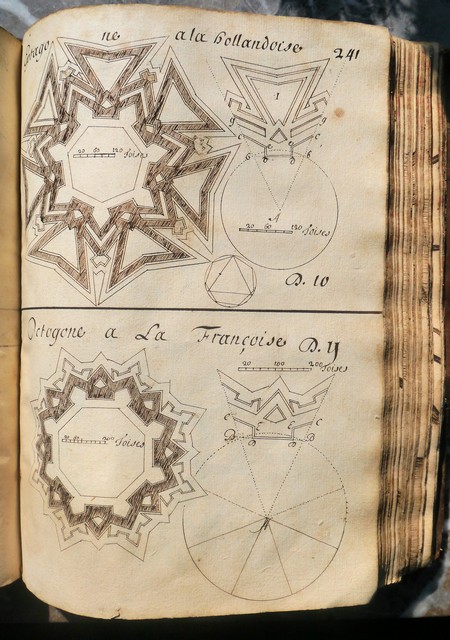 ne a la hollandoise 241
1
g g
c c
e e
G B
20 60 120 Toises
A
20 60 120 Toises
D. 10
Octogone a La Françoise D. 11
20 100 200
Toises
c c
E E
D D
Toises